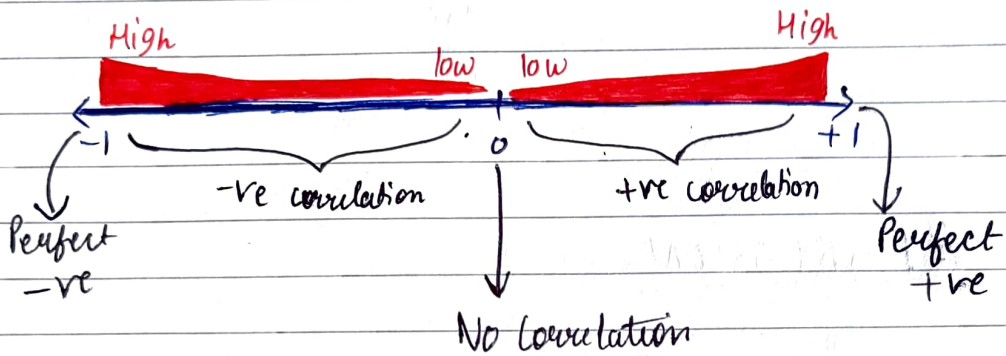 High
High
low
low
-1
0
+1
-ve correlation
+ve correlation
Perfect
-ve
Perfect
+ve
No Correlation